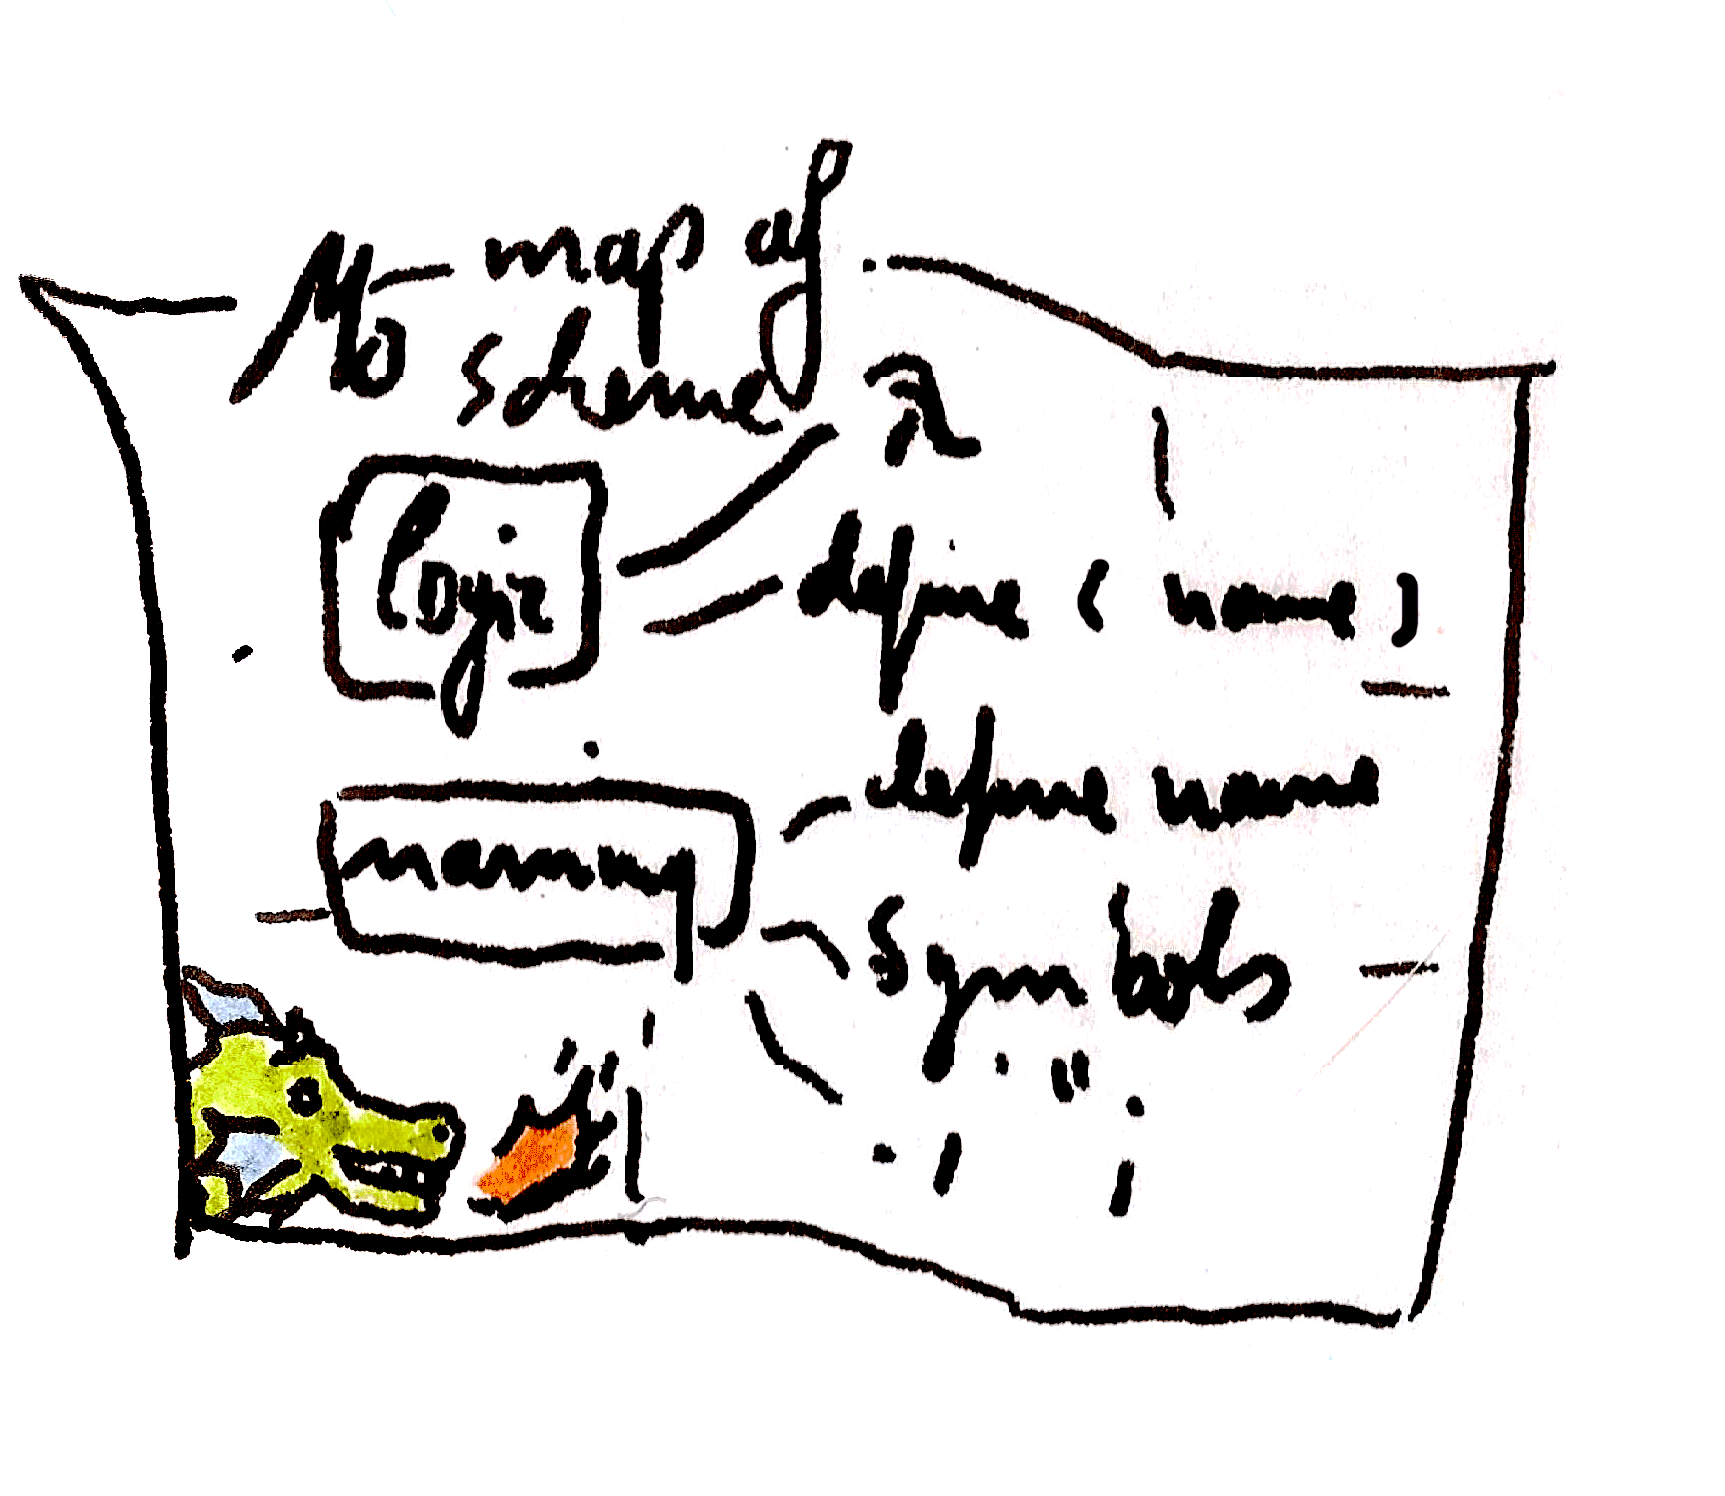 My map of
scheme
λ
logic
define ( name )
define name
naming
symbols